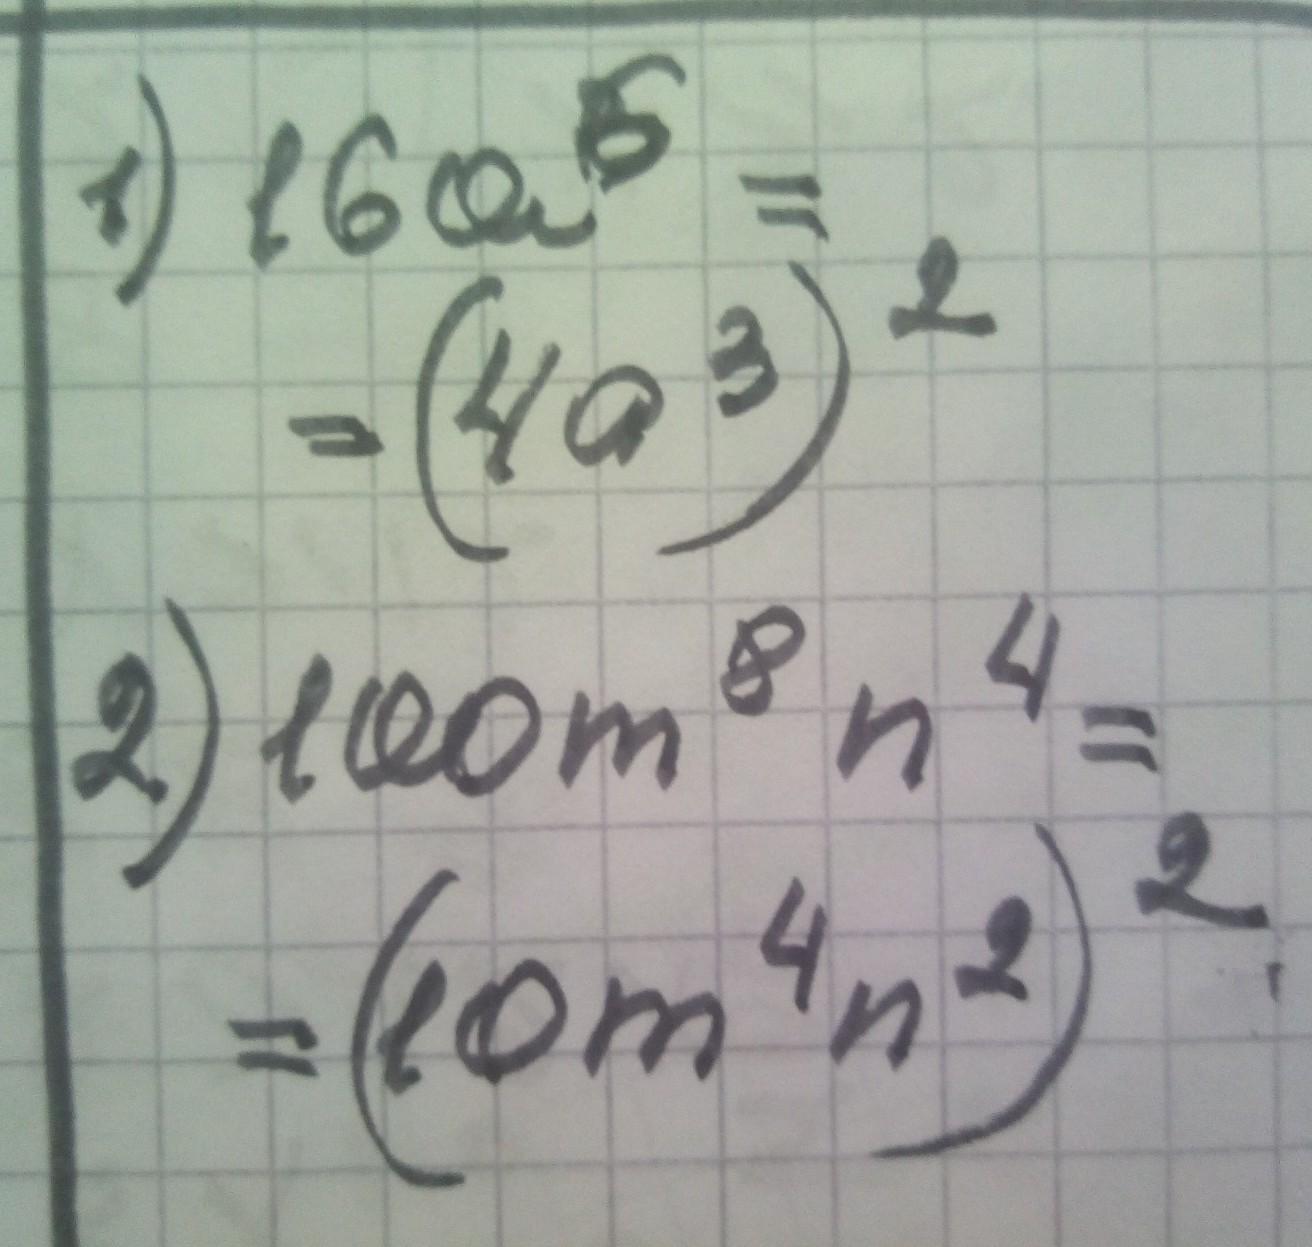 1) 16a⁶ =
= (4a³)²
2) 100m⁸n⁴ =
= (10m⁴n²)²